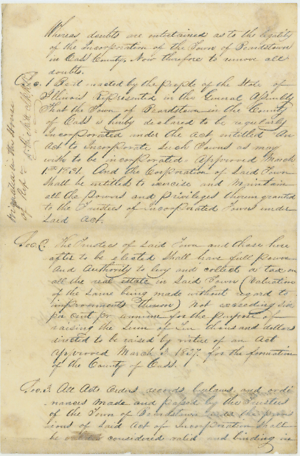 Whereas doubts are entertained as to the legality
of the Incorporation of the Town of Beardstown
in Cass County, Now therefore to remove all
doubts.
Sec. 1 Be it enacted by the people of the State of
Illinois represented in the General Assembly
That the Town of Beardstown in the County
of Cass is hereby declared to be
incorporated under the Act entitled "An
Act to Incorporate such Towns as may
wish to be incorporated" approved March
1st 1831. And the Corporation of said Town
shall be entitled to exercise and maintain
all the powers and privileges herein granted
to the Trustees of incorporated Towns under
said Act.
Sec 2. The Trustees of said Town and those here
after to be elected shall have full power
and authority to levy and collect a tax on
all the real estate in said Town (valuation
of the same being made without regard to
improvements thereon) Not exceeding
per cent pr annum for the purpose of
raising the sum of thousand dollars
directed to be raised by virtue of an Act
approved March 3, 1837, for the formation
of the County of Cass.
Sec. 3 All Acts Orders, records bylaws and ordi
nances made and passed by the Trustees
of the Town of Beardstown
sions of said Act of Incorporation shall
be considered valid and binding in
in the House